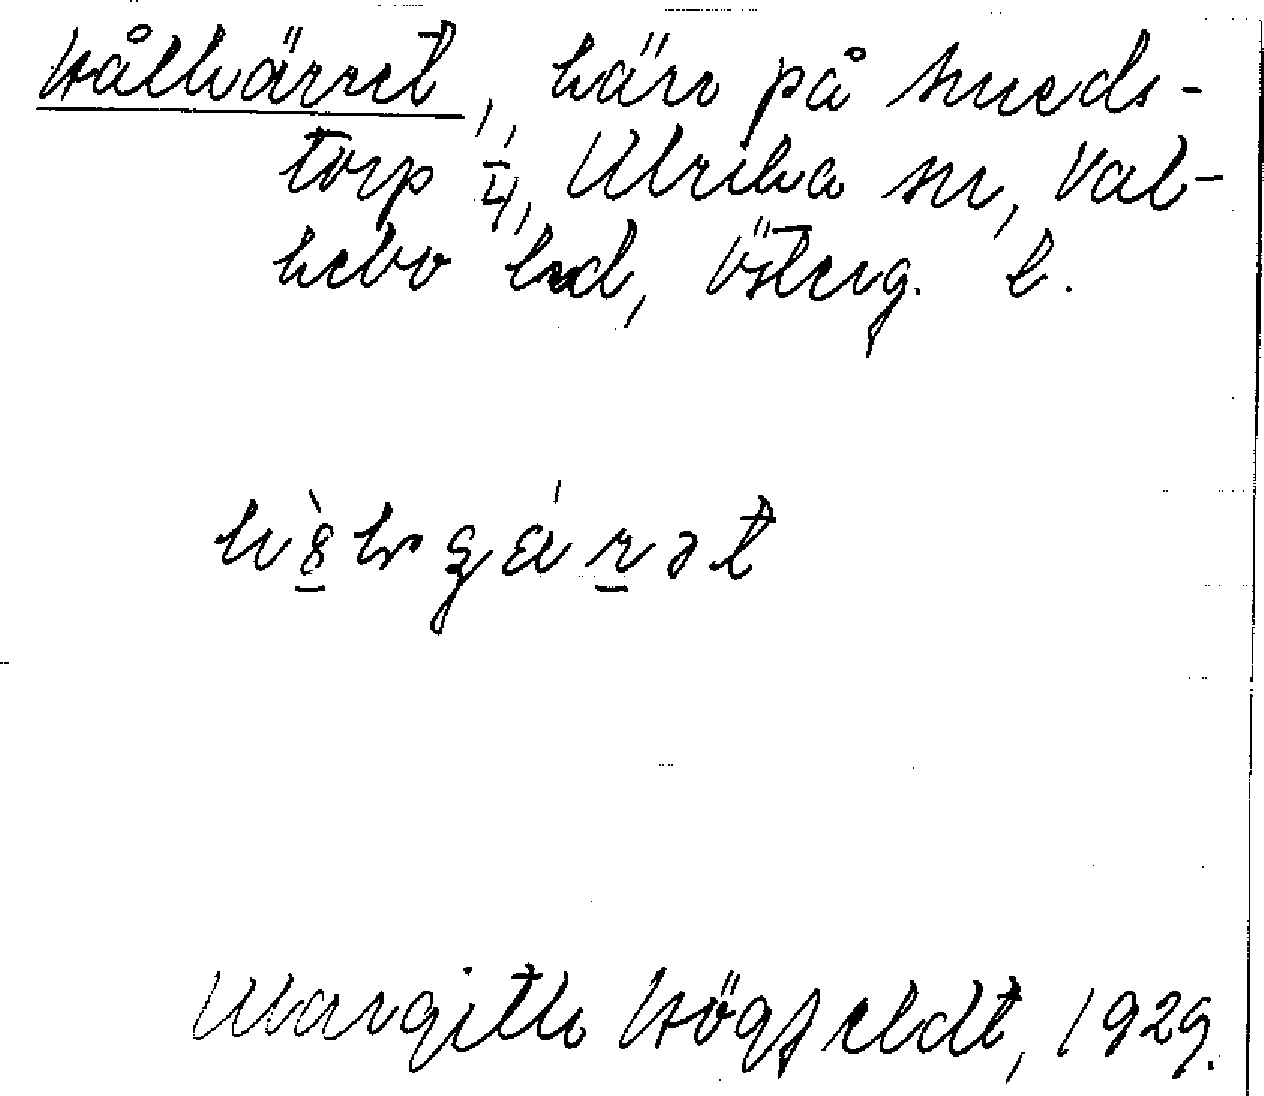 Hålkärret, kärr på Smeds-
torp 1/4, Ulrika sn, Val-
kebo hd, Österg. l.
Margith Högfeldt, 1929.